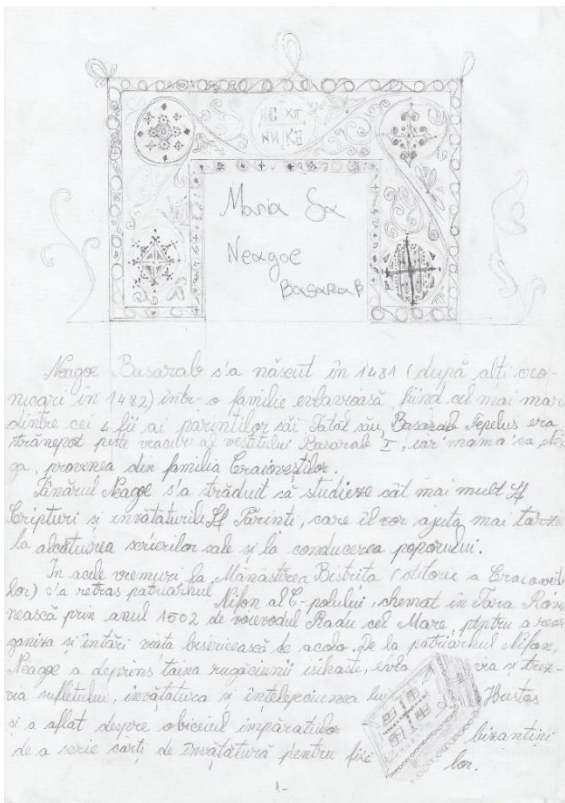 ИС ХП
НИ КВ
Maria Sa
Neagoe
Basarab
Neagoe Basarab s'a născut în 1481 (după alti cro-
nicari în 1482) într-o familie evlavioasă, fiind cel mai mare
dintre cei 4 fii ai parintilor săi. Tatăl său, Basarab Tepelus era
strănepot peste veacuri al vestitului Basarab I, iar mama sa
ga, provenea din familia Craioveștilor.
Tânărul Neagoe s'a străduit să studieze cât mai mult Sf
Scripturi si invătăturile Sf Părinti, care îl vor ajuta mai târziu
la alcătuirea scrierilor sale si la conducerea poporului.
În acele vremuri la Mănăstirea Bistrita (ctitorie a Craiovesti
lor) s'a retras patriarhul Nifon al C-polului, chemat în Tara Româ
nească prin anul 1502 de voievodul Radu cel Mare, pentru a reor
ganiza și întări viata bisericească de acolo. De la patriarhul Nifon,
Neagoe a deprins taina rugăciunii isihaste, evla via si trez-
via sufletului, invătătura si întelepciunea lui Hristos
și a aflat despre obiceiul impăratilor bizantini
de a scrie cărti de învătătură pentru fiii lor.
1-